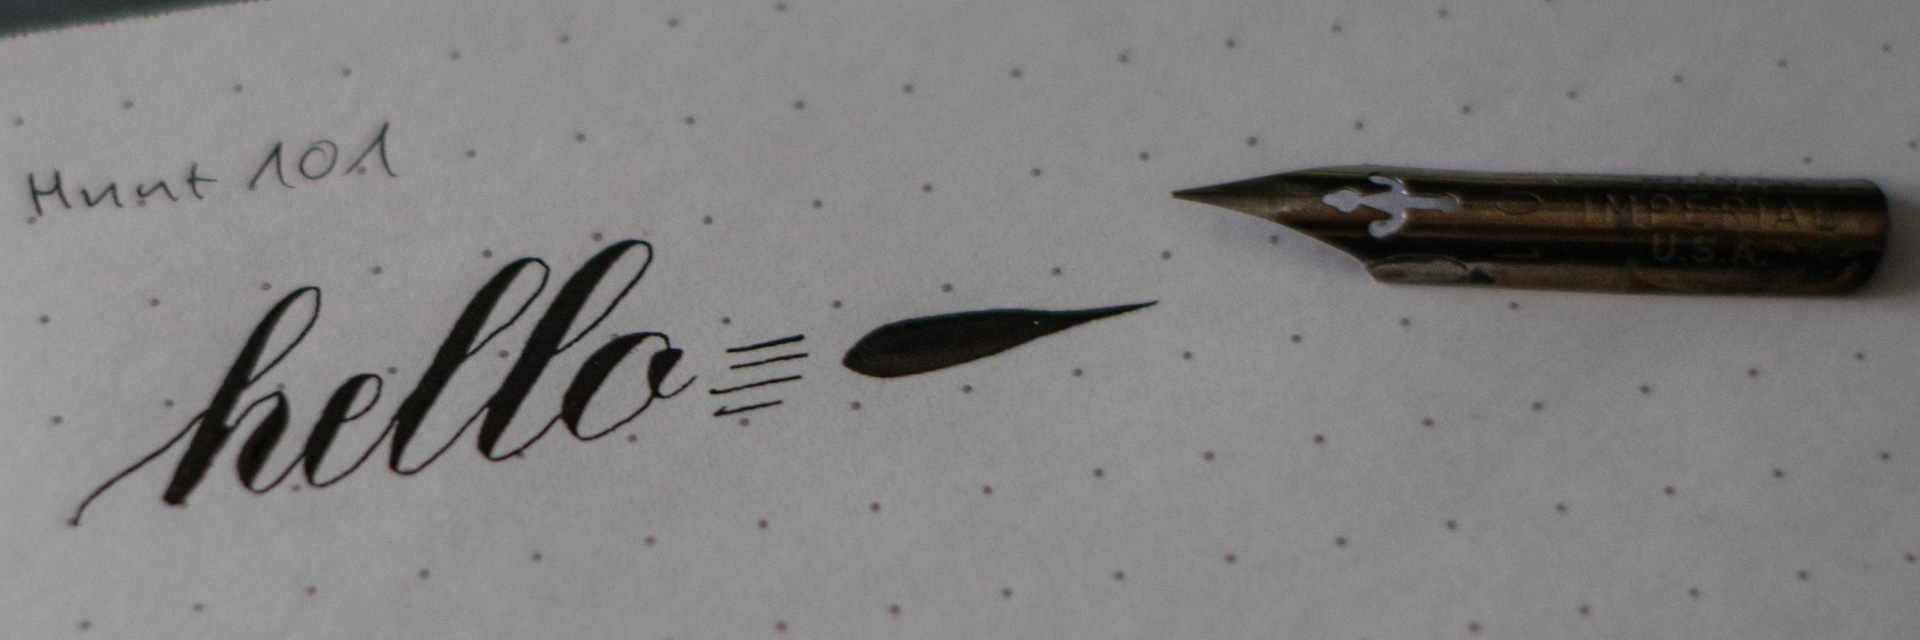 Hunt 101
hello
IMPERIAL
U.S.A.